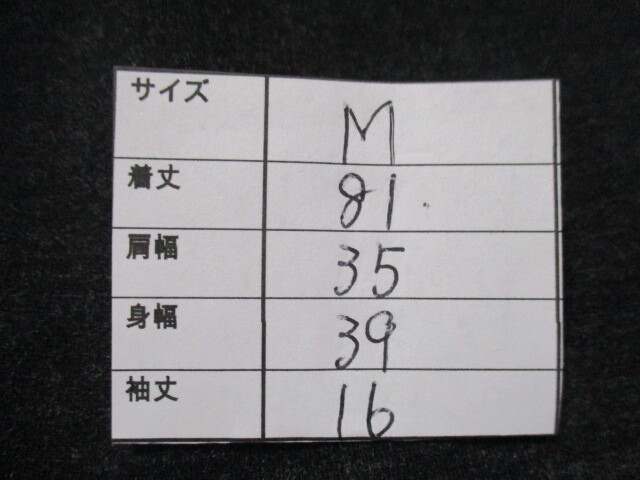 サイズ M
着丈 81
肩幅 35
身幅 39
袖丈 16